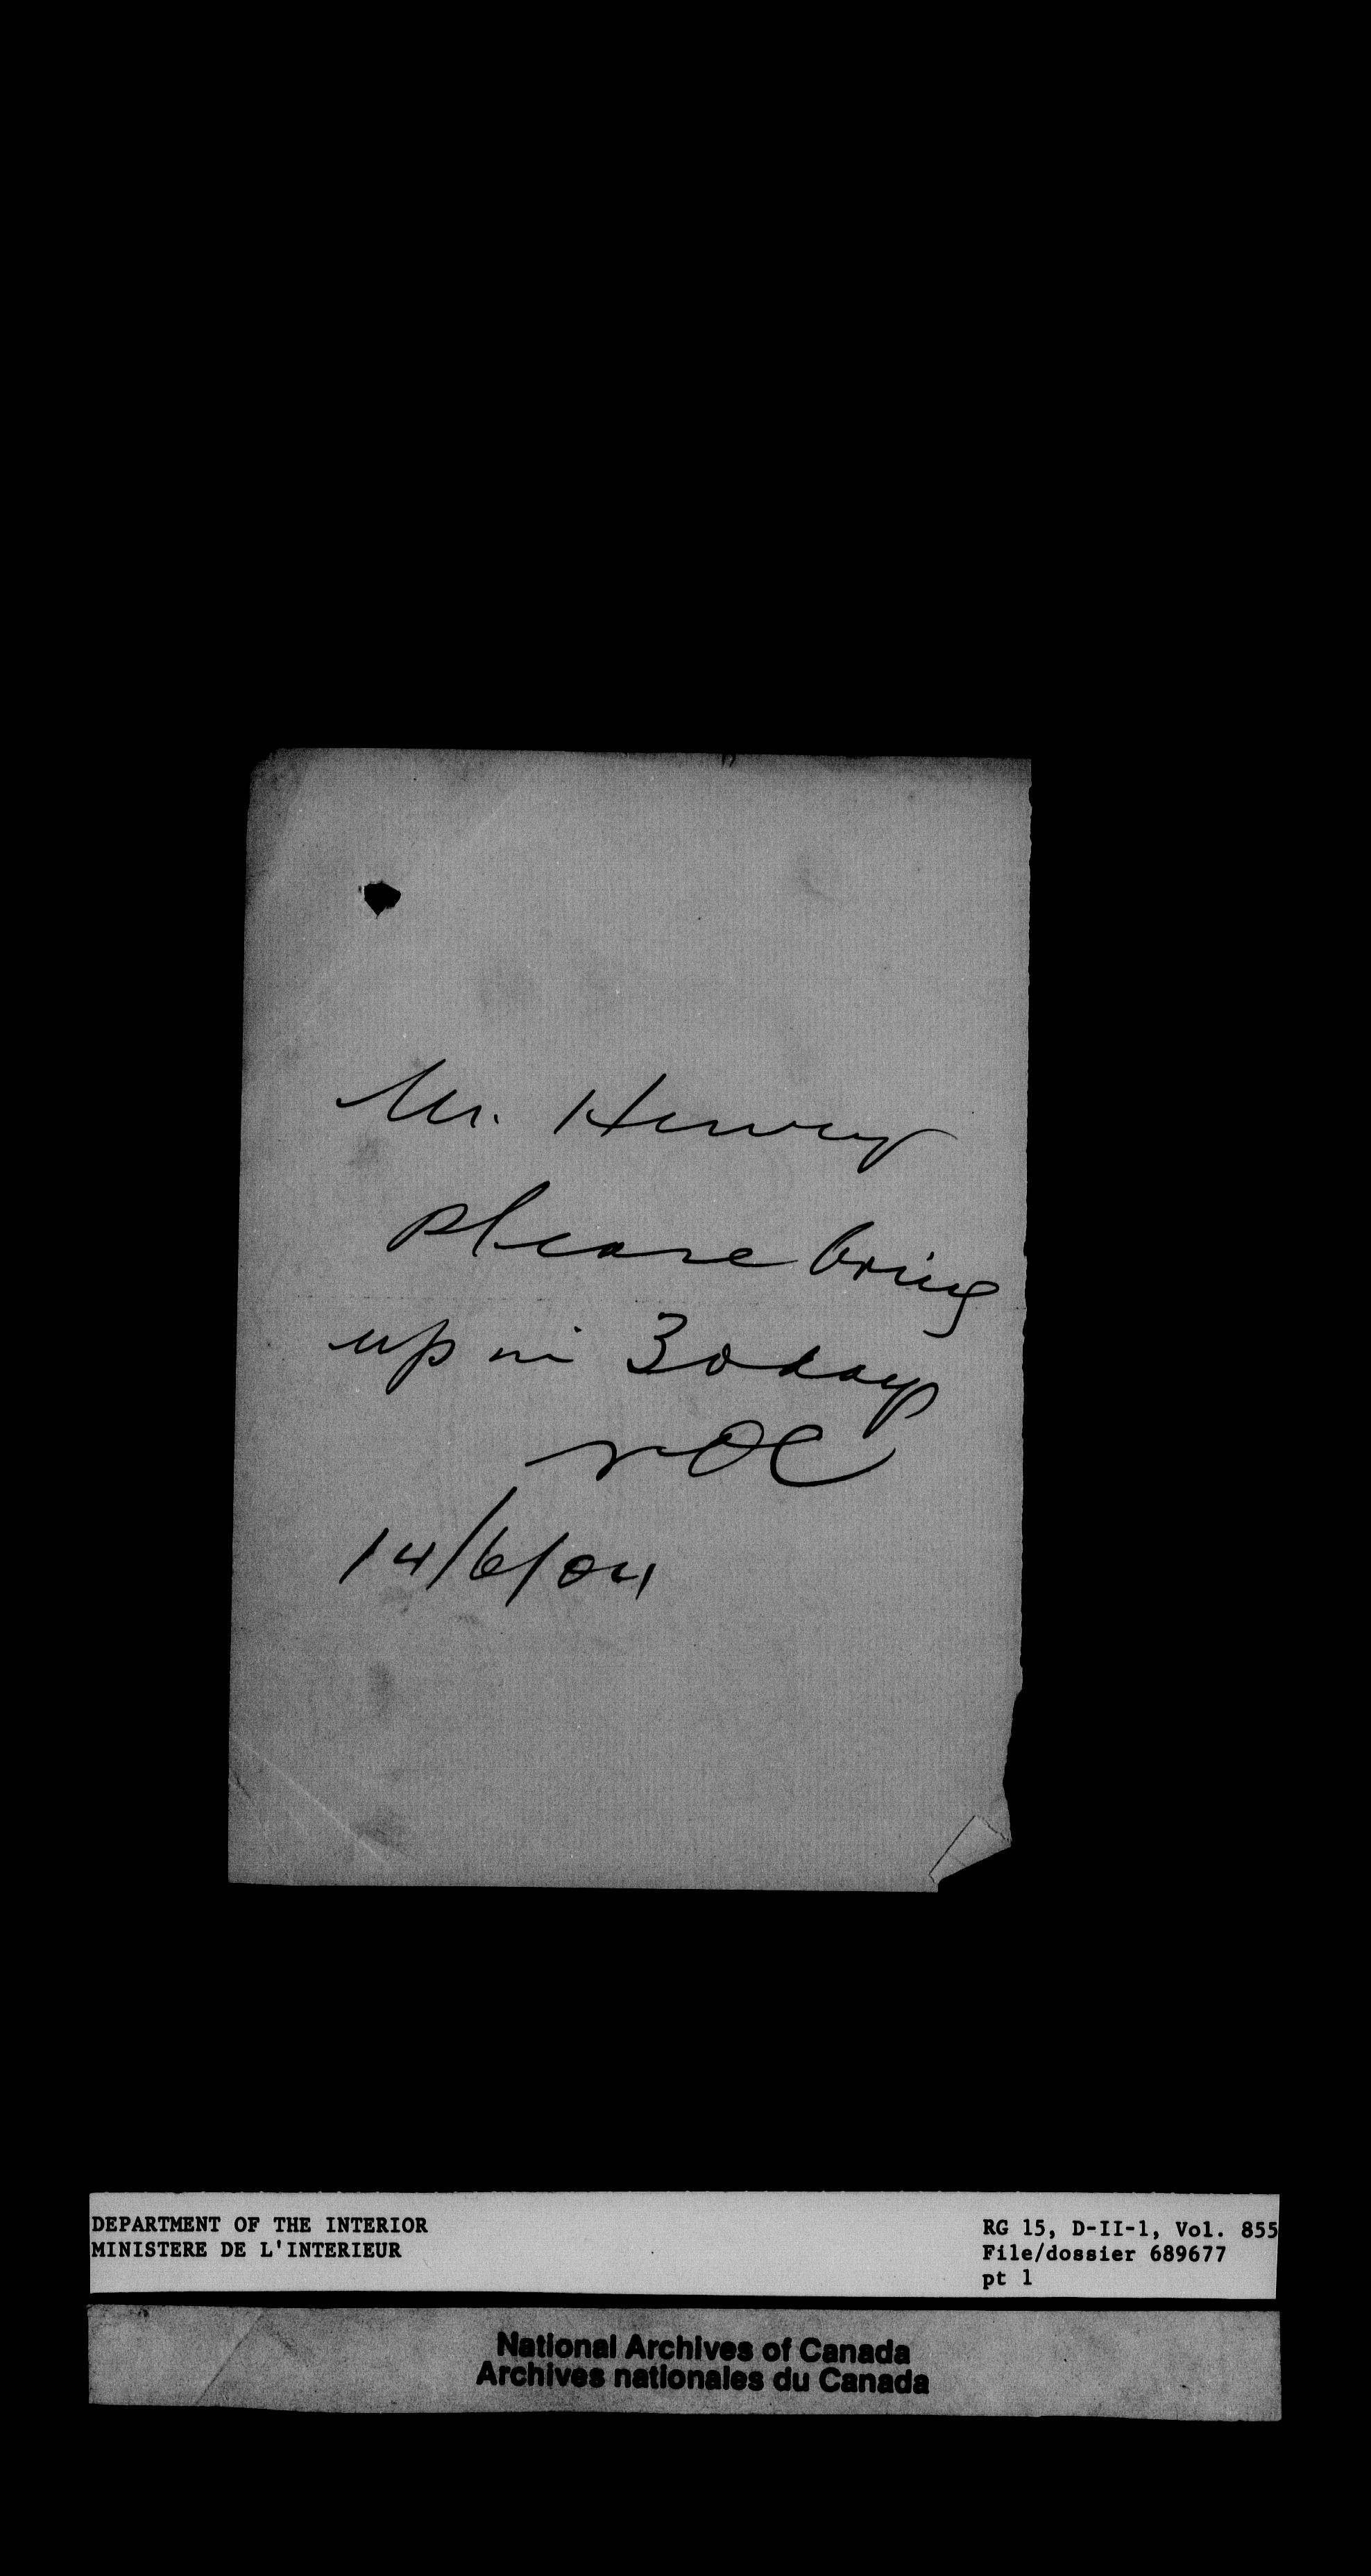 Mr. Henry
please bring
up in 30 days
14/6/04
DEPARTMENT OF THE INTERIOR
MINISTERE DE L'INTERIEUR
RG 15, D-II-1, Vol. 855
File/dossier 689677
pt 1
National Archives of Canada
Archives nationales du Canada